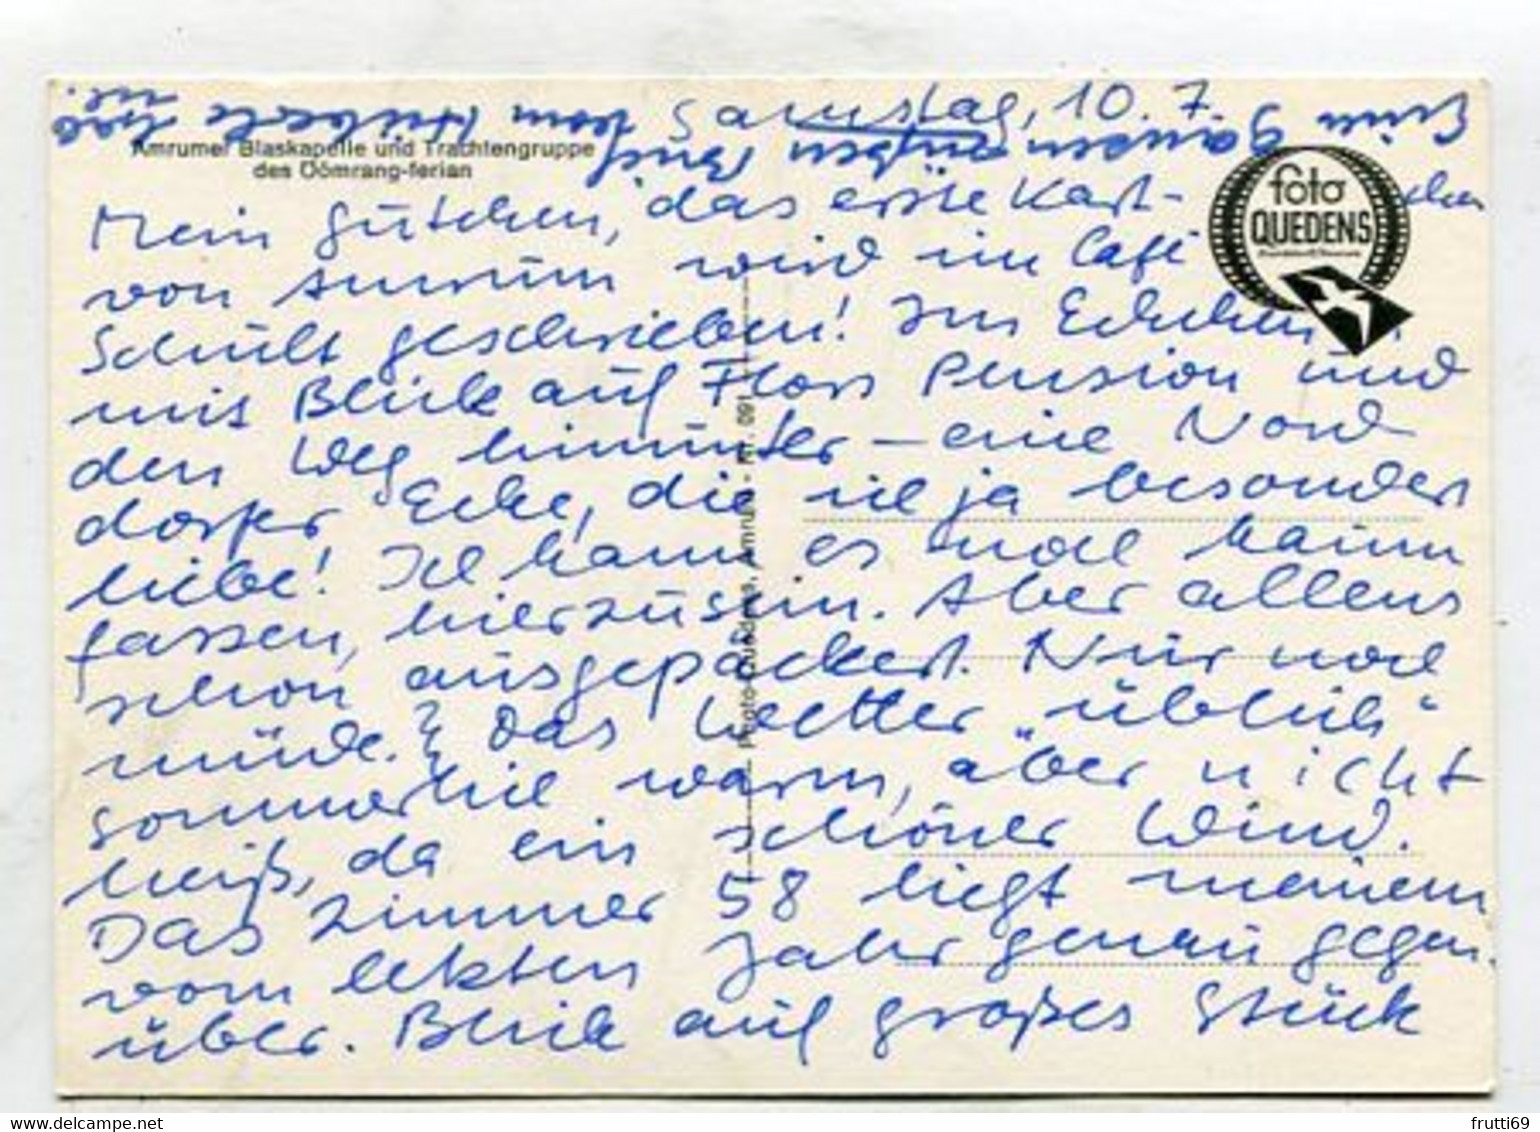 Samstag, 10.7.
Amrumer Blaskapelle und Trachtengruppe
des Öömrang-ferian
foto
QUEDENS
Mein Gutchen, das erste Kärt-chen
von Amrum wird im Café
Schult geschrieben! Im Eckchen
mit Blick auf Flors Pension und
den Weg hinunter – eine Nord
dorfer Ecke, die ich ja besonders
liebe! Ich kann es noch kaum
fassen, hierzusein. Aber allens
schon ausgepackert. Nur noch
müde. Das Wetter „üblich“
sommerlich warm, aber nicht
heiß, da ein schöner Wind.
Das Zimmer 58 liegt meinem
vom letzten Jahr genau gegen
über. Blick auf großes Stück
Photo Quedens, Amrum - Nr. 091
frutti69
delcampe.net